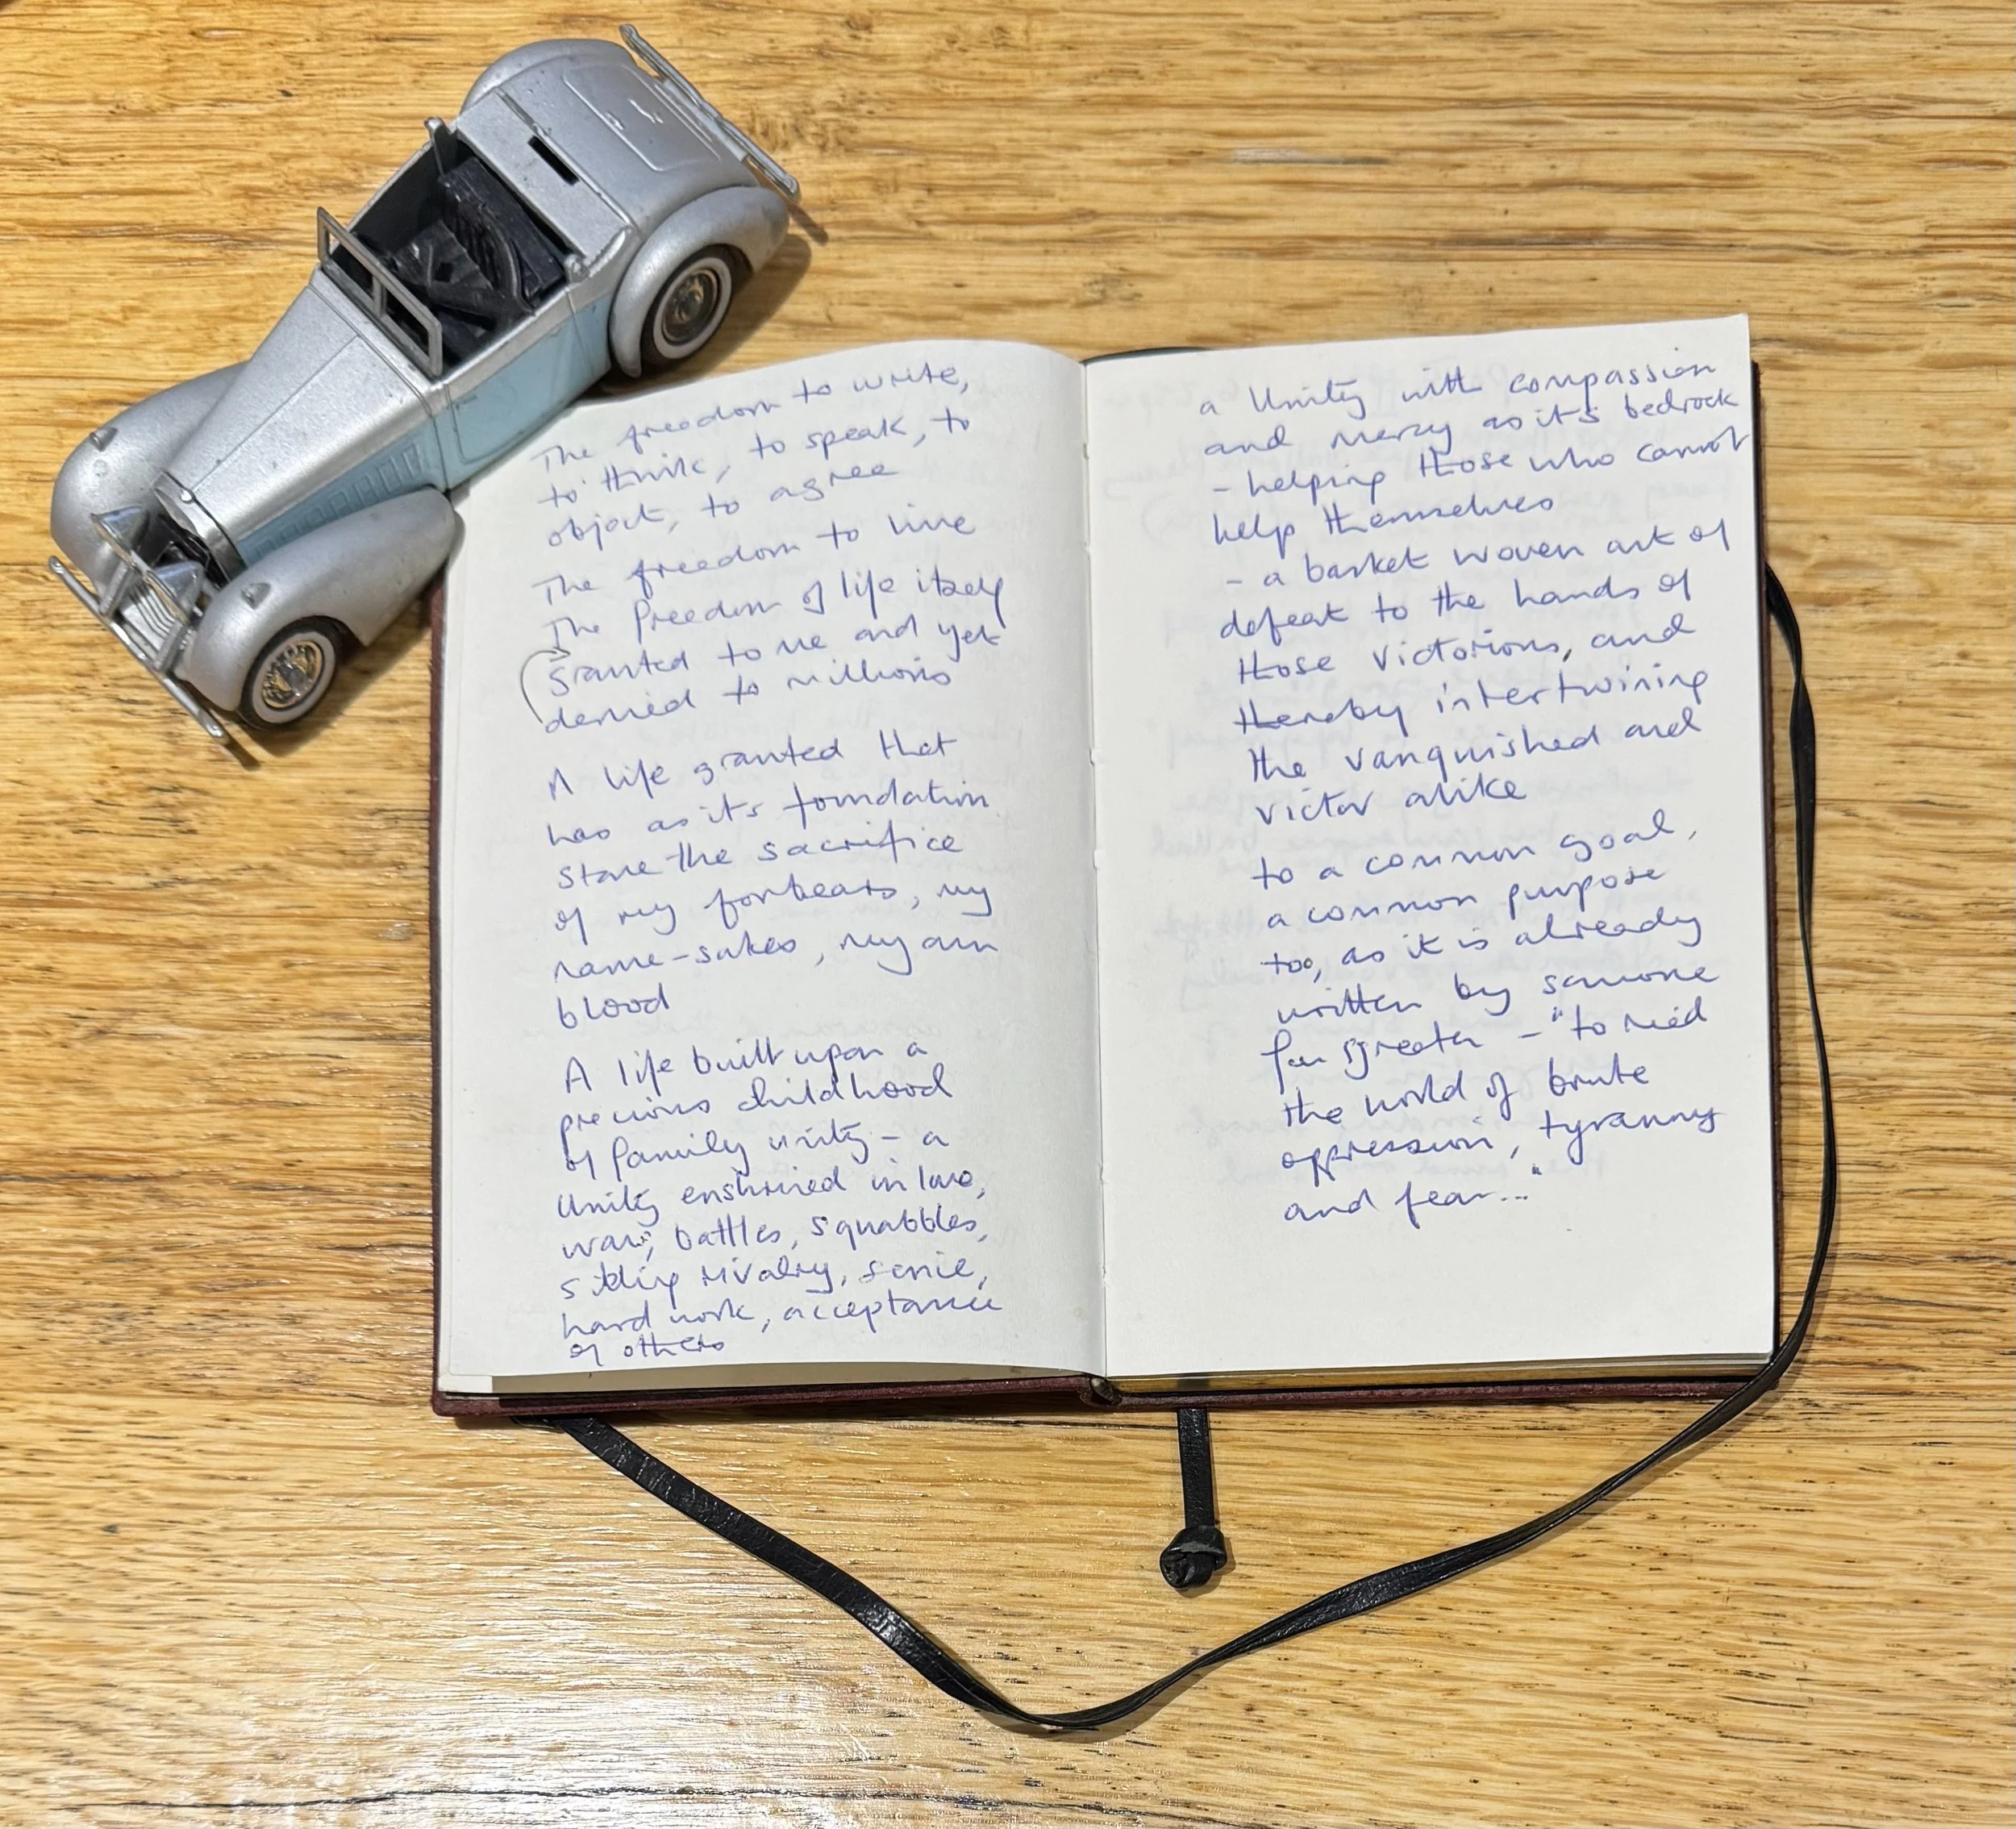 The freedom to write,
to think, to speak, to
object, to agree
The freedom to live
The freedom of life itself
granted to me and yet
denied to millions
A life granted that
has as it's foundation
stone the sacrifice
of my forbears, my
name-sakes, my own
blood
A life built upon a
precious childhood
of family unity - a
Unity enshrined in love,
wars, battles, squabbles,
sibling rivalry,
hard work, acceptance
of others
a Unity with compassion
and mercy as it's bedrock
- helping those who cannot
help themselves
- a basket woven out of
defeat to the hands of
those victorious, and
thereby intertwining
the vanquished and
victor alike
to a common goal,
a common purpose
too, as it is already
written by someone
far greater - "to rid
the world of brute
oppression, tyranny
and fear..."